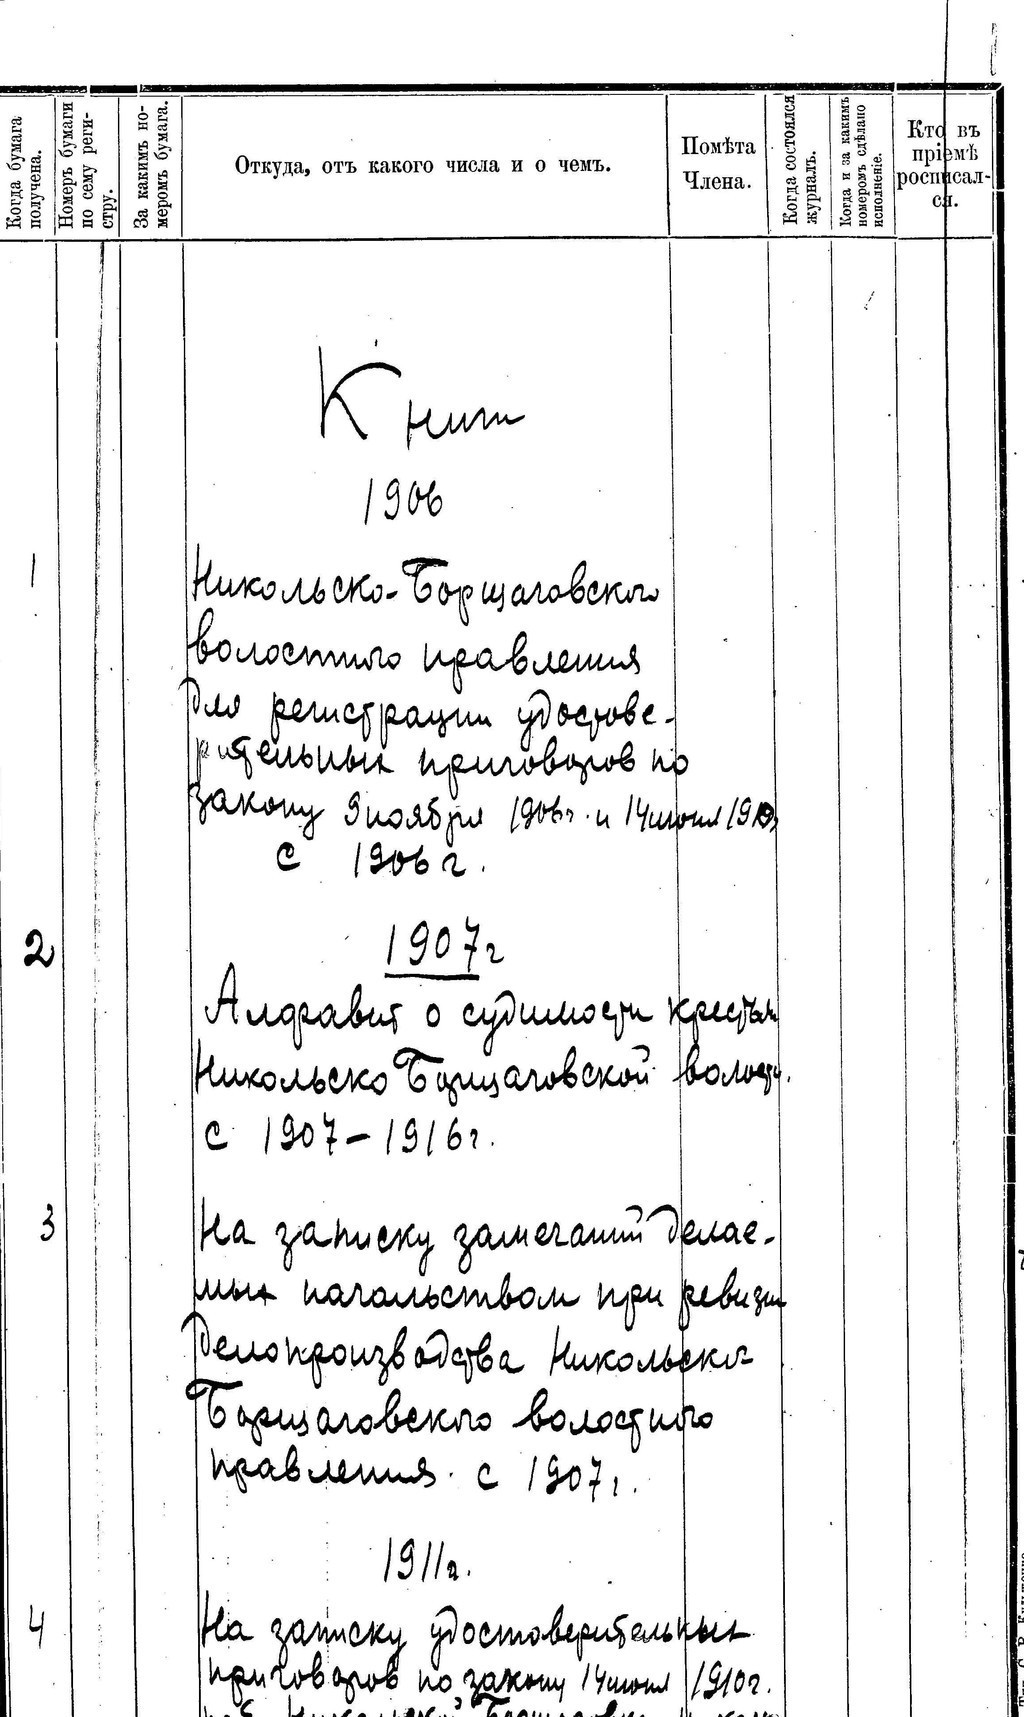 Когда бумага получена.
Номеръ бумаги по сему реги-стру.
За какимъ но-меромъ бумага.
Откуда, отъ какого числа и о чемъ.
Помѣта Члена.
Когда состоялся журналъ.
Когда и за какимъ номеромъ сдѣлано исполненіе.
Кто въ пріемѣ росписал-ся.
Книги
1906
1
Никольско-Борщаговского
волостного правления
для регистрации удостове-
рительных приговоров по
закону 9 ноября 1906г. и 14 июня 1910г.
с 1906 г.
1907г
2
Алфавит о судимости крестьян
Никольско Борщаговской волости.
с 1907-1916г.
3
На записку замечаний делае-
мых начальством при ревизии
делопроизводства Никольско-
Борщаговского волостного
правления с 1907г.
1911г.
4
На записку удостоверительных
приговоров по закону 14 июня 1910г.